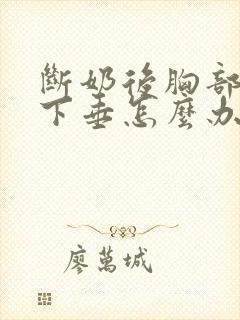 斷奶後胸部
下垂怎麼办
廖萬城